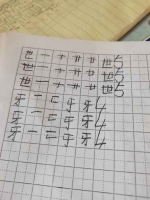 世一十廿丗世5
世一十廿丗世5
世一十廿丗世5
牙一二于牙4
牙一二于牙4
牙一二于牙4